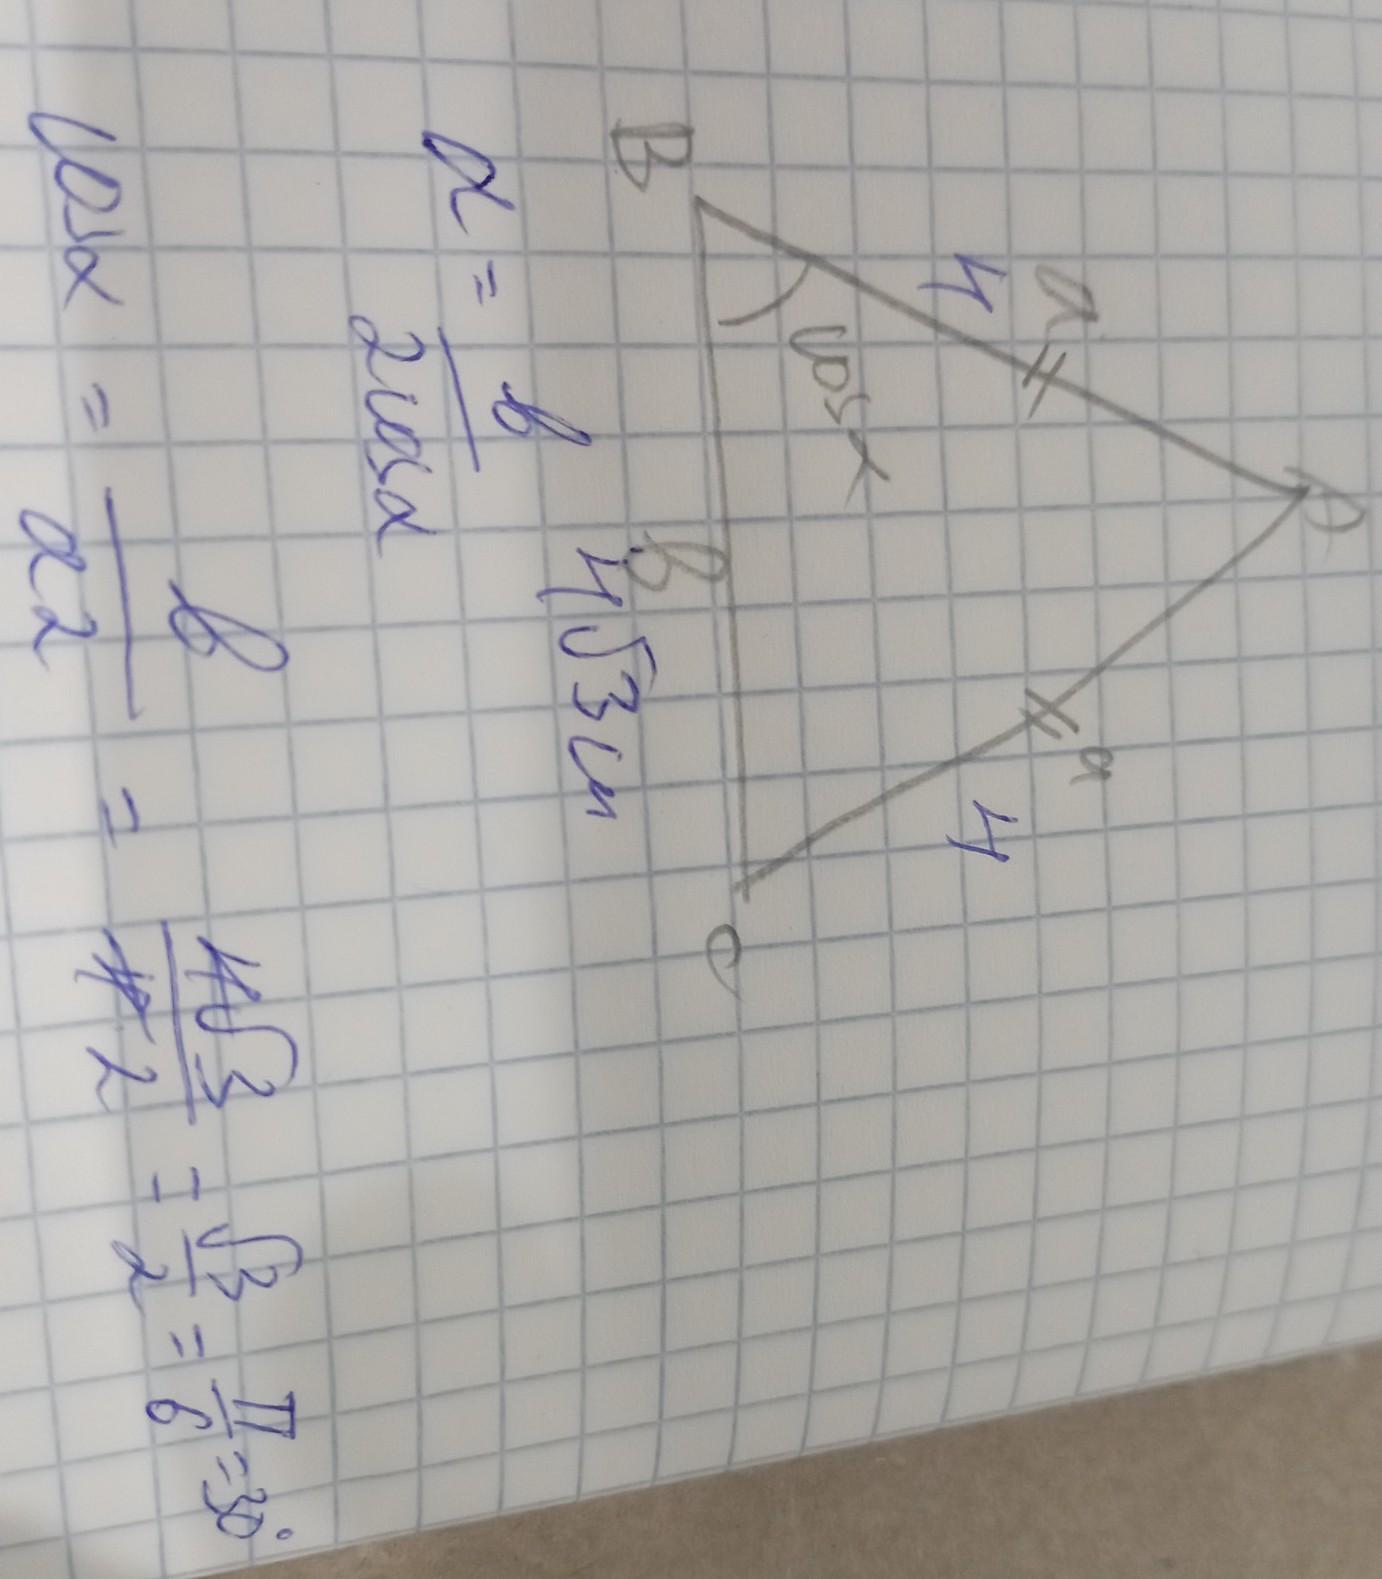 A
a a
4 4
cos α
B C
b
4√3 см
a = b / 2cosα
cosα = b / a2 = 4√3 / 4 2 = √3 / 2 = π / 6 = 30°